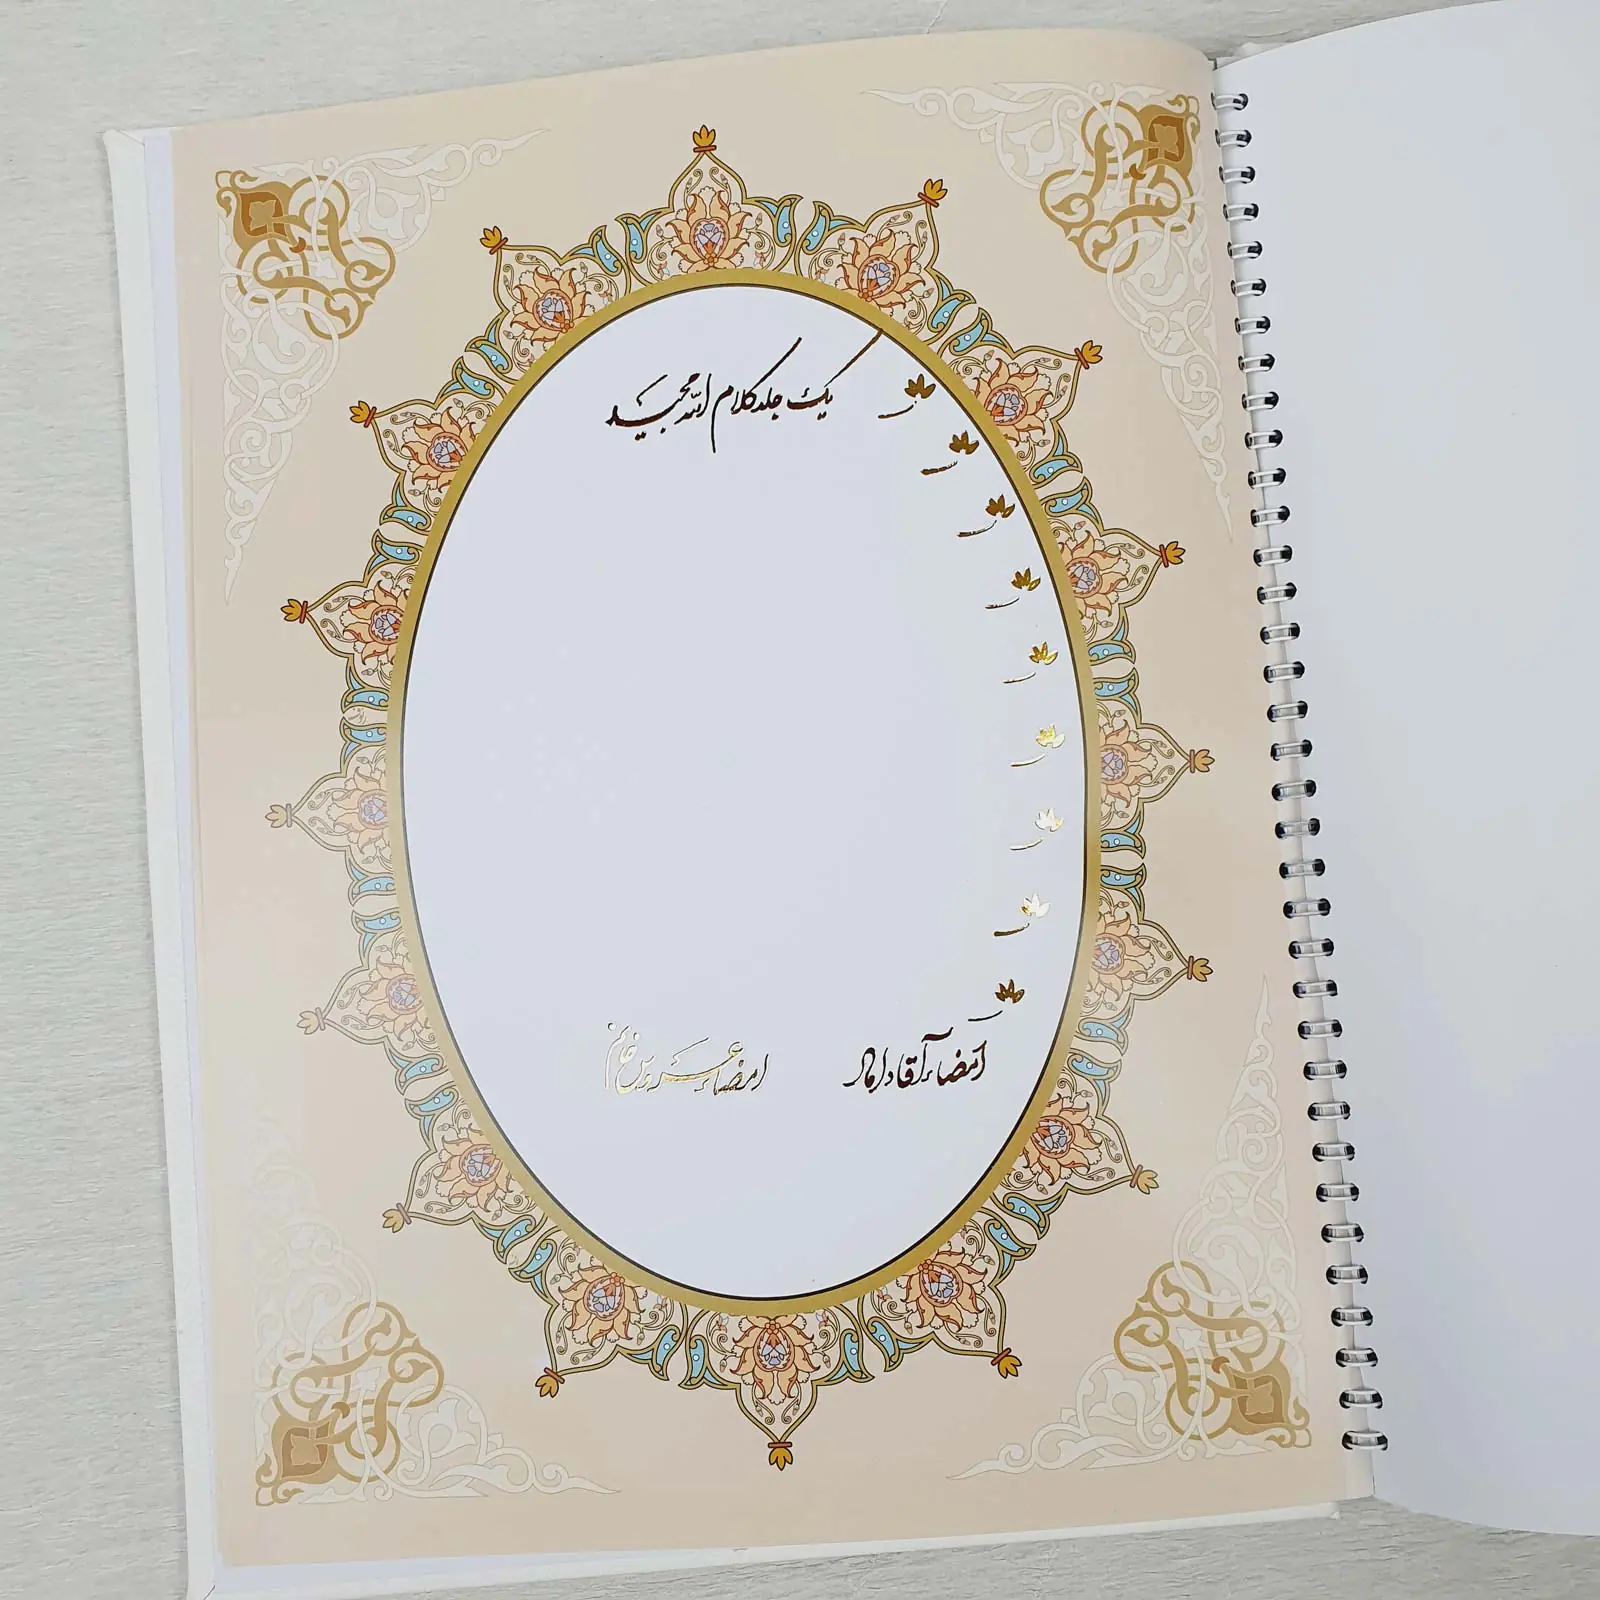 یک جلد کلام الله مجید
امضاء آقا داماد
امضاء عروس خانم